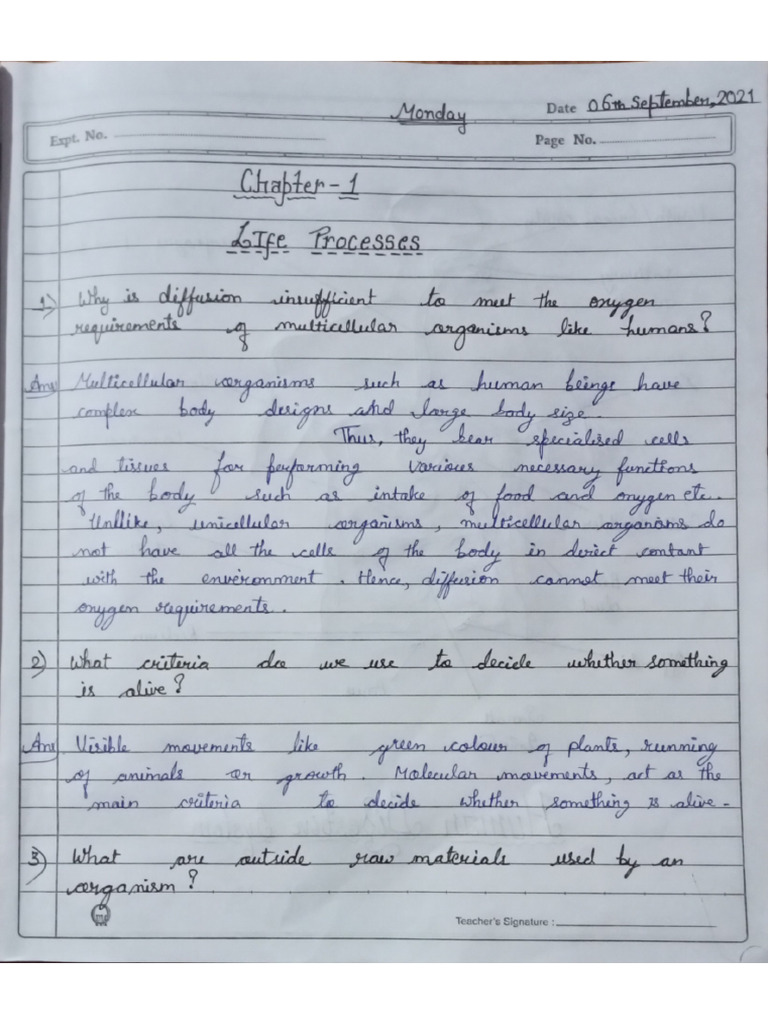 Monday
Date 06th September, 2021
Expt. No.
Page No.
Chapter-1
LIfe Processes
1) Why is diffusion insufficient to meet the oxygen
requirements of multicellular organisms like humans?
Ans Multicellular organisms such as human beings have
complex body designs and large body size.
Thus, they bear specialised cells
and tissues for performing various necessary functions
of the body such as intake of food and oxygen etc.
Unllike, unicellular organisms, multicellular organisms do
not have all the cells of the body in direct contant
with the environment. Hence, diffusion cannot meet their
oxygen requirements.
2) What criteria do we use to decide whether something
is alive?
Ans Visible movements like green colour of plants, running
of animals or growth. Molecular movements, act as the
main criteria to decide whether something is alive.
3) What are outside raw materials used by an
organism?
Teacher's Signature :